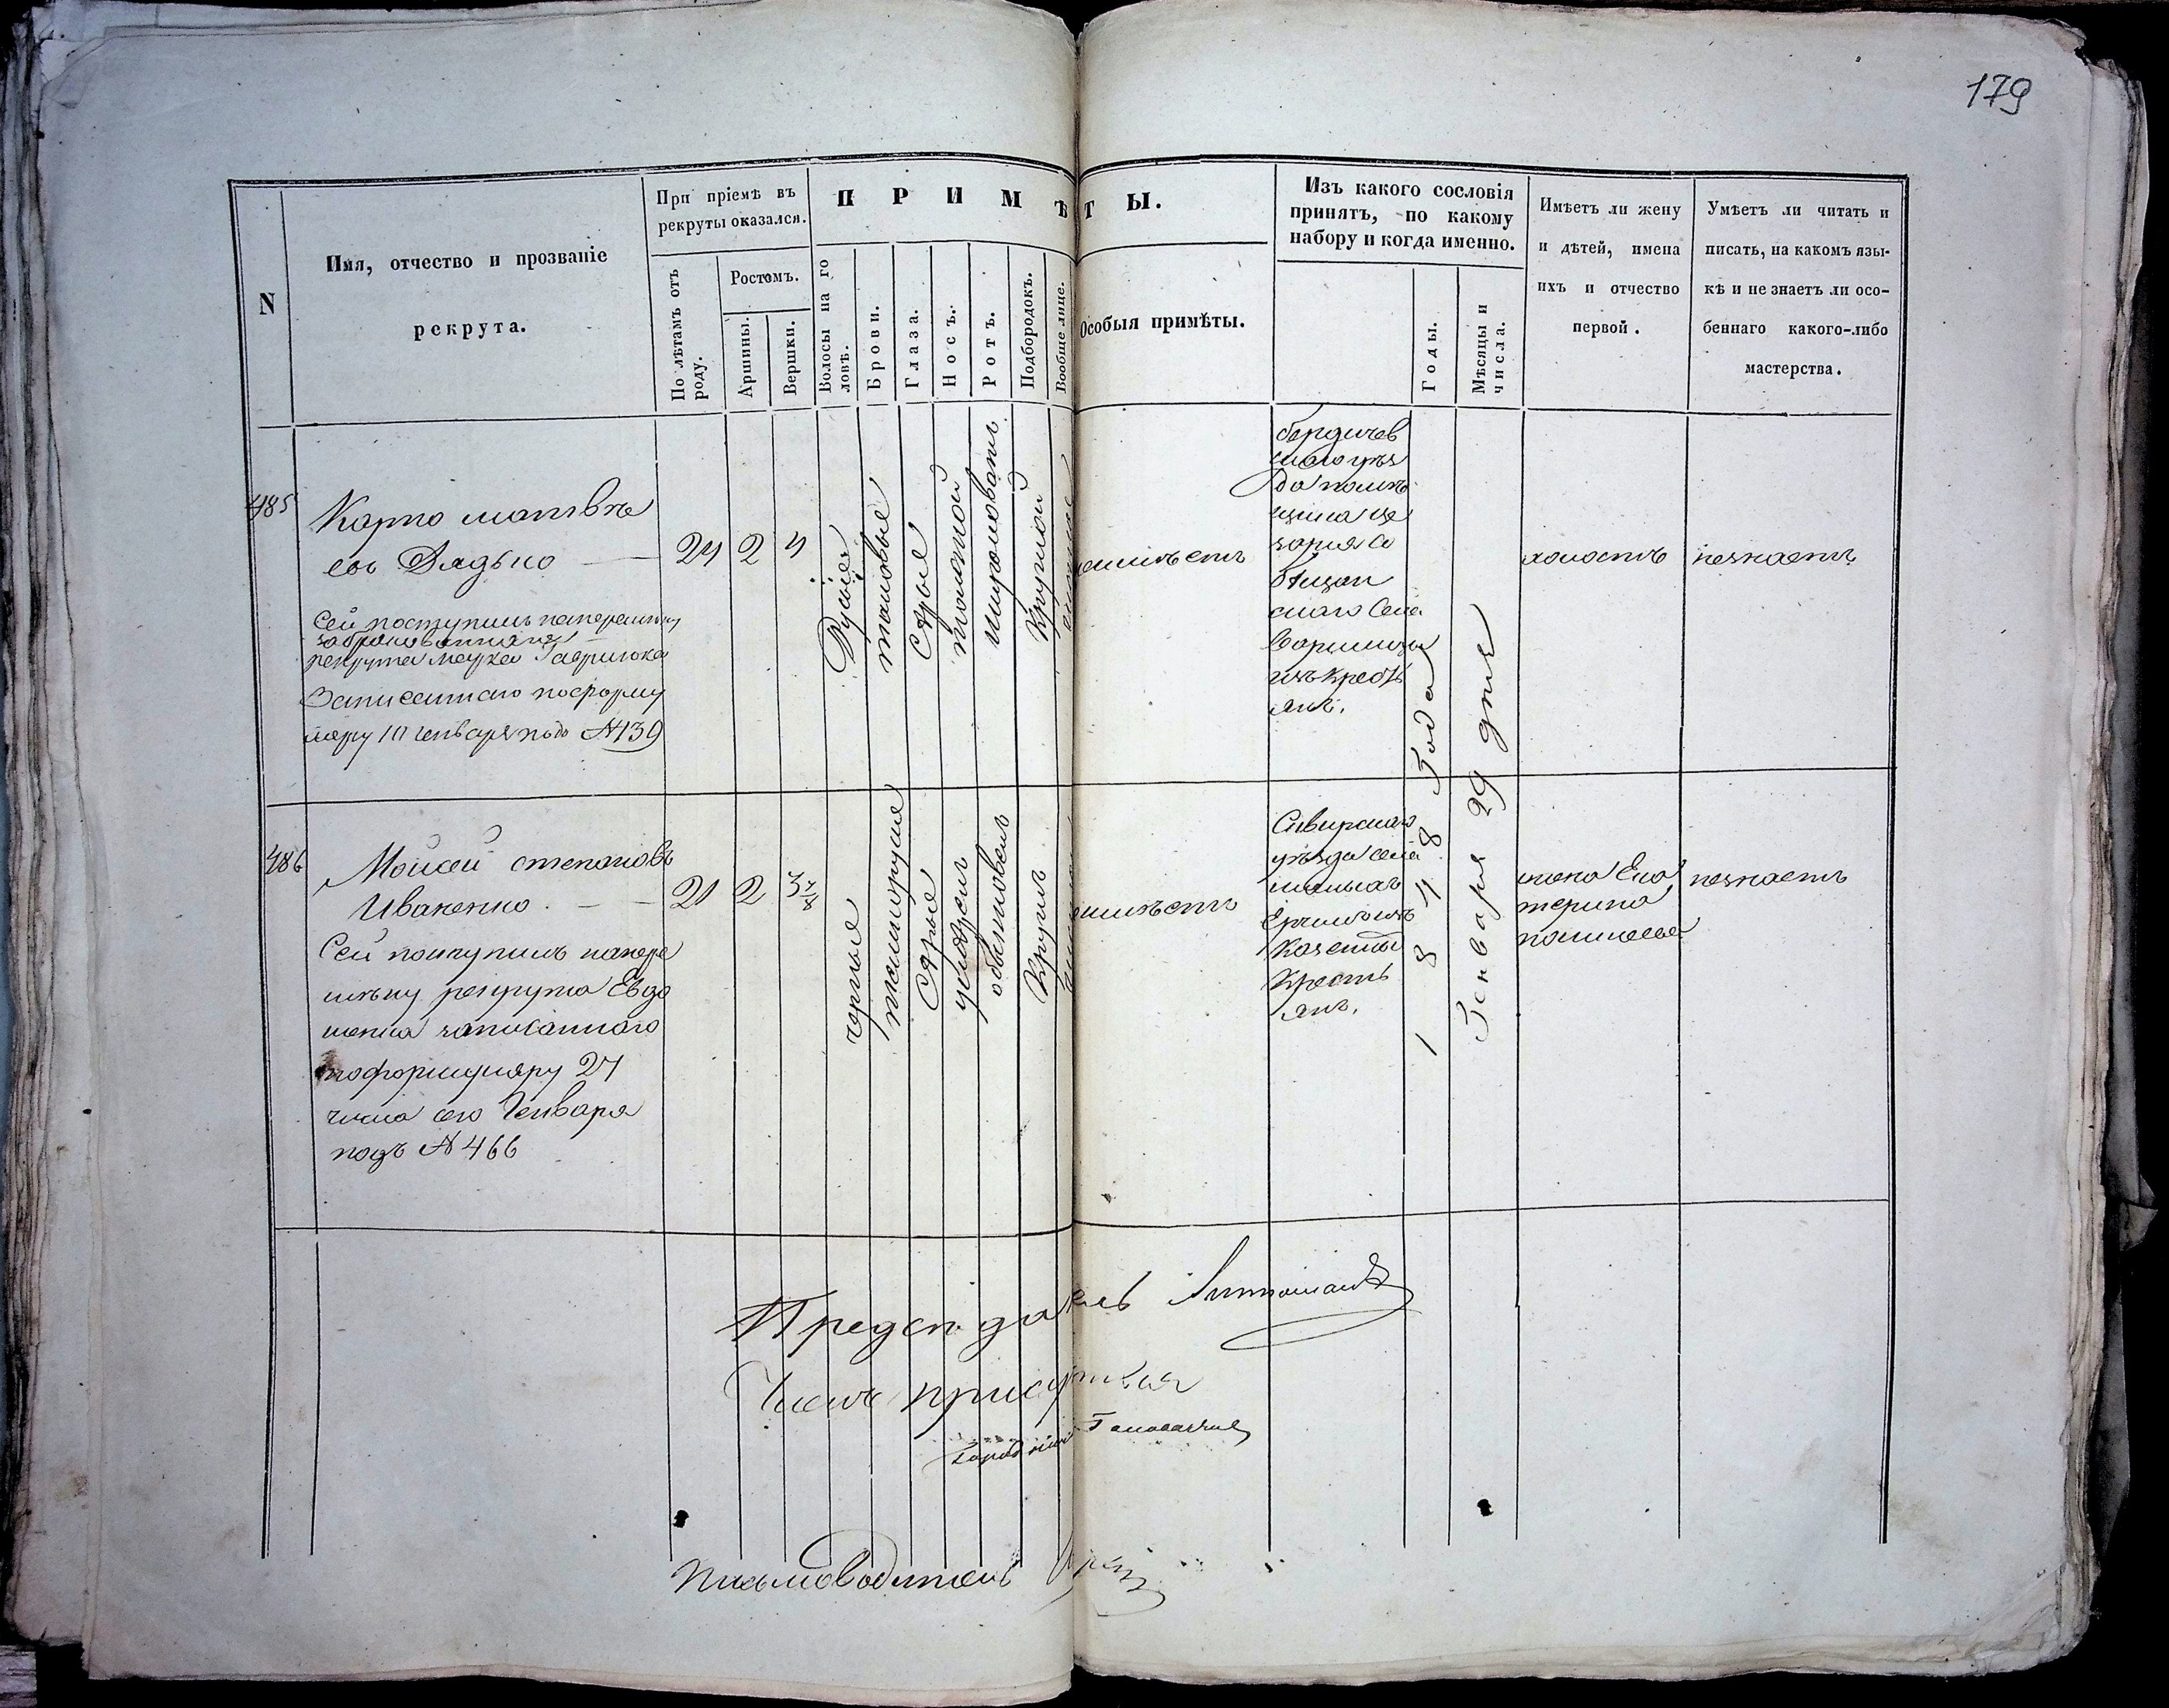 179
N
Имя, отчество и прозваніе
рекрута.
При пріемѣ въ
рекруты оказался.
По лѣтамъ отъ
роду.
Ростомъ.
Аршины.
Вершки.
ПРИМѢТЫ.
Волосы на го
ловѣ.
Брови.
Глаза.
Носъ.
Ротъ.
Подбородокъ.
Вообще лице.
Особыя примѣты.
Изъ какого сословія
принятъ, по какому
набору и когда именно.
Годы.
Мѣсяцы и
числа.
Имѣетъ ли жену
и дѣтей, имена
ихъ и отчество
первой.
Умѣетъ ли читать и
писать, на какомъ язы-
кѣ и не знаетъ ли осо-
беннаго какого-либо
мастерства.
485
Карпо матвѣе
въ Дядько
Сей поступилъ наперемѣну
забракованнаго
рекрута марка Гаврилюка
Записаннаго поформу
ляру 10 генваря подъ №139
24
2
4
Русые
таковые
Сѣрые
Круглой
бердичев
скаго уѣз
да помѣ
щика це
заря
скаго Села
изъ крест
янъ.
1848 Года
Генваря 29 дня
холостъ
незнаетъ
486
Мойсей степановъ
Иваненко
Сей поступилъ напере
мѣну рекрута Евдо
кима записаннаго
поформуляру 27
числа сего Генваря
подъ №466
21
2
3 7/8
черные
темнорусые
Сѣрые
обыкновенъ
Круглъ
уѣзда села
Казенны
Крестъ
янъ.
жена Ека
терина
незнаетъ
Предсѣдатель
Членъ присутствія
Письмоводитель